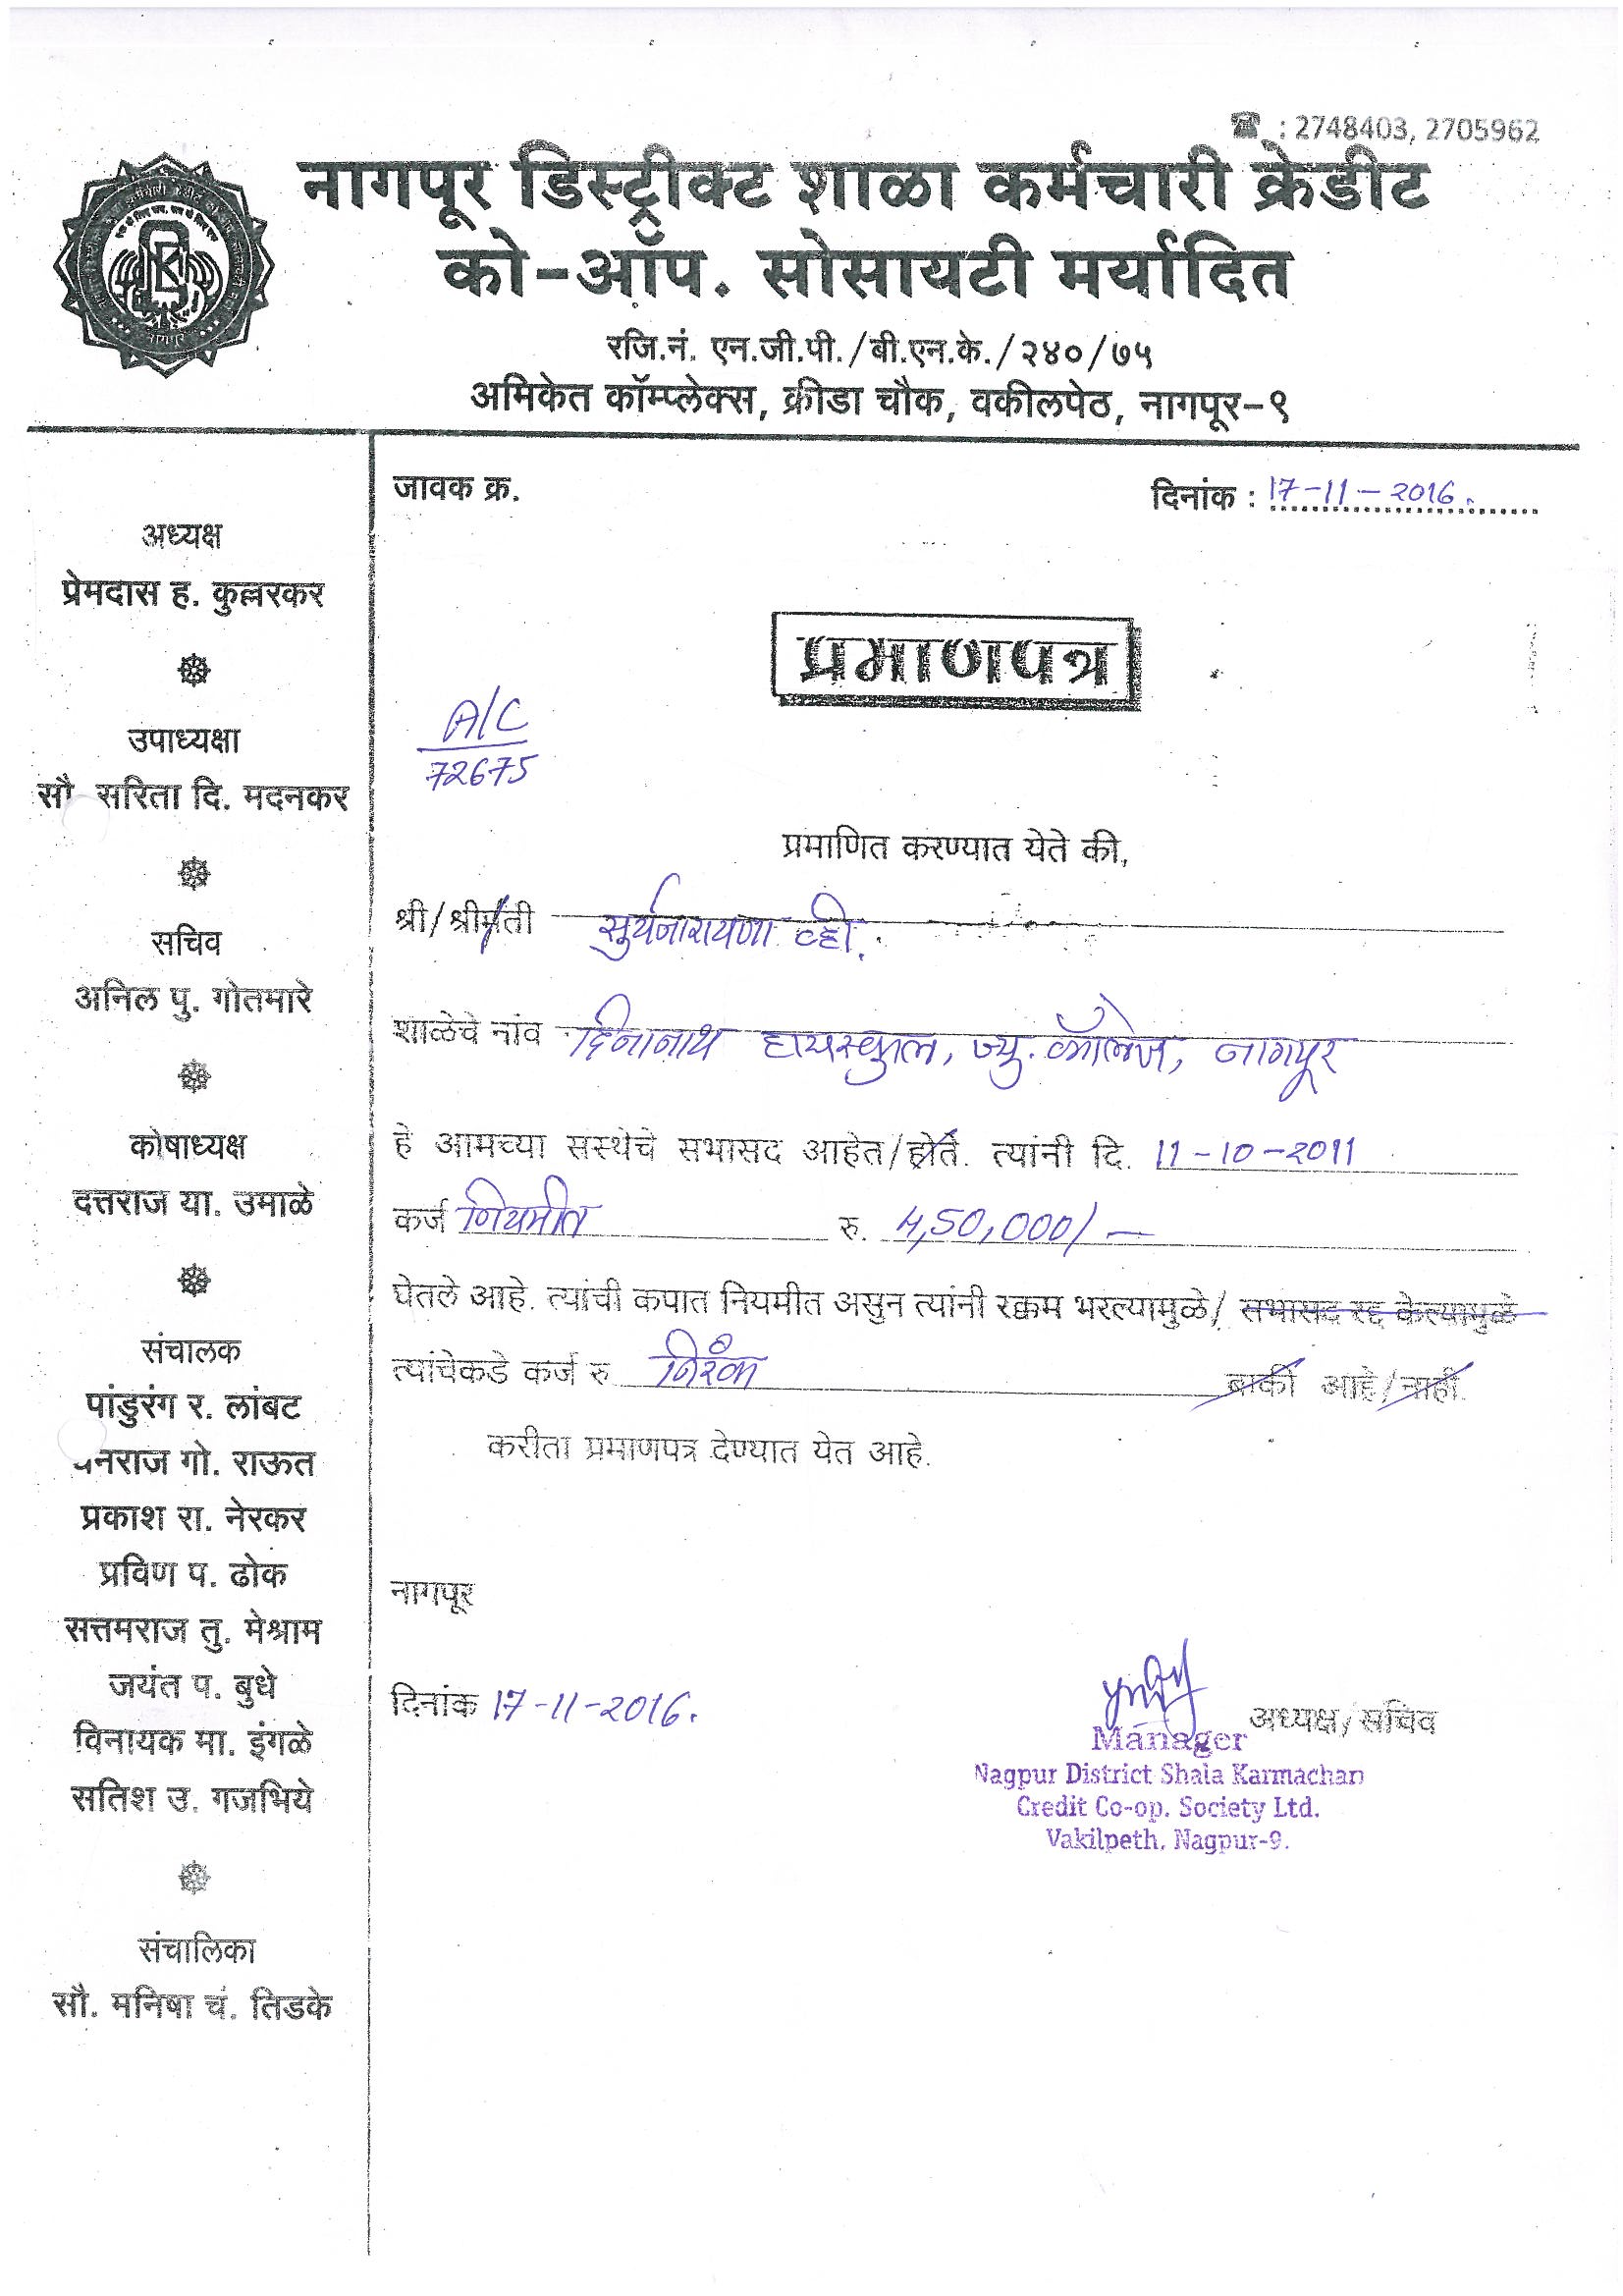 ☎ : 2748403, 2705962
नागपूर डिस्ट्रीक्ट शाळा कर्मचारी क्रेडीट
को-ऑप. सोसायटी मर्यादित
रजि.नं. एन.जी.पी./बी.एन.के./२४०/७५
अमिकेत कॉम्प्लेक्स, क्रीडा चौक, वकीलपेठ, नागपूर-९
नागपूर
अध्यक्ष
प्रेमदास ह. कुल्लरकर
उपाध्यक्षा
सौ. सरिता दि. मदनकर
सचिव
अनिल पु. गोतमारे
कोषाध्यक्ष
दत्तराज या. उमाळे
संचालक
पांडुरंग र. लांबट
नराज गो. राऊत
प्रकाश रा. नेरकर
प्रविण प. ढोक
सत्तमराज तु. मेश्राम
जयंत प. बुधे
विनायक मा. इंगळे
सतिश उ. गजभिये
संचालिका
सौ. मनिषा चं. तिडके
जावक क्र.
दिनांक : 17-11-2016.
प्रमाणपत्र
A/C
72675
प्रमाणित करण्यात येते की,
श्री/श्रीमती सुर्यनारायणा व्ही.
शाळेचे नांव दिनानाथ हायस्कुल, ज्यु. कॉलेज, नागपूर
हे आमच्या सस्थेचे सभासद आहेत/होते. त्यांनी दि. 11-10-2011
कर्ज नियमीत रु. 4,50,000/-
घेतले आहे. त्यांची कपात नियमीत असुन त्यांनी रक्कम भरल्यामुळे/ सभासद रद्द केल्यामुळे
त्यांचेकडे कर्ज रु निरंक बाकी आहे/नाही.
करीता प्रमाणपत्र देण्यात येत आहे.
नागपूर
दिनांक 17-11-2016.
अध्यक्ष/सचिव
Manager
Nagpur District Shala Karmachari
Credit Co-op. Society Ltd.
Vakilpeth, Nagpur-9.